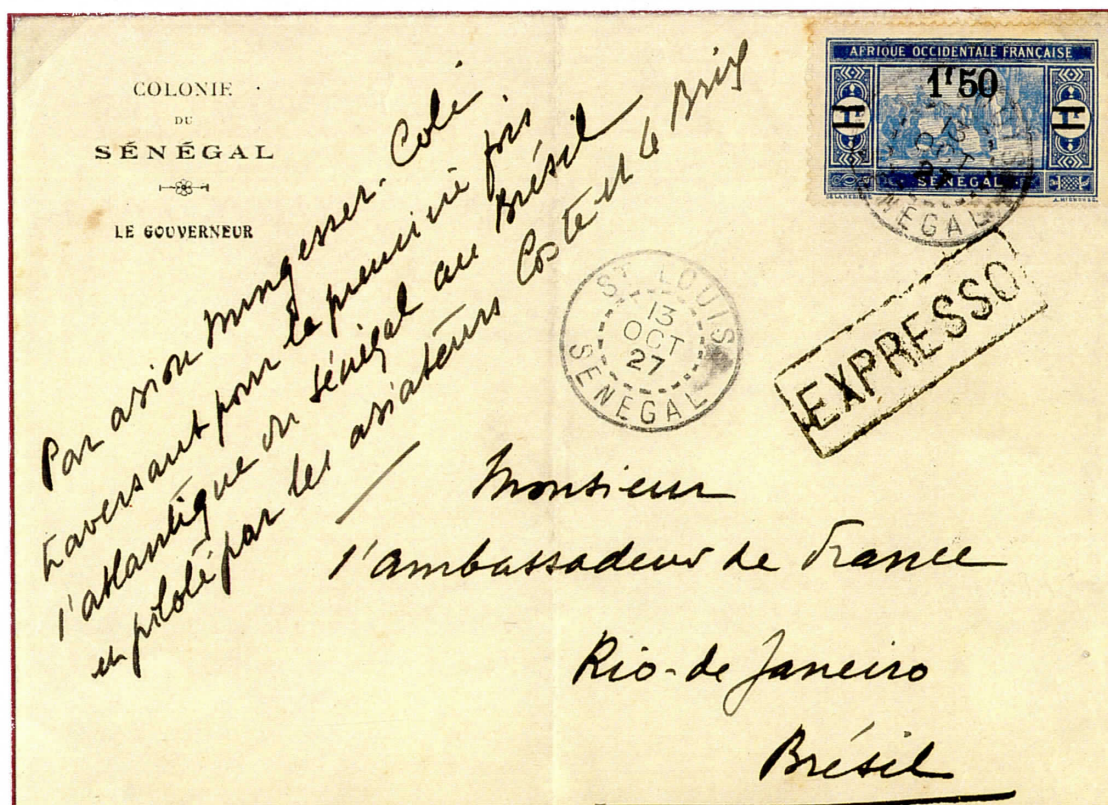 COLONIE
DU
SÉNÉGAL
LE GOUVERNEUR
Par avion Nungesser-Coli
traversant pour la première fois
l'atlantique du Sénégal au Brésil
et piloté par les aviateurs Coste et le Brix
AFRIQUE OCCIDENTALE FRANÇAISE
1f50
SÉNÉGAL
ST LOUIS
13
OCT
27
SENEGAL
SENEGAL
EXPRESSO
Monsieur
l'ambassadeur de France
Rio-de Janeiro
Brésil